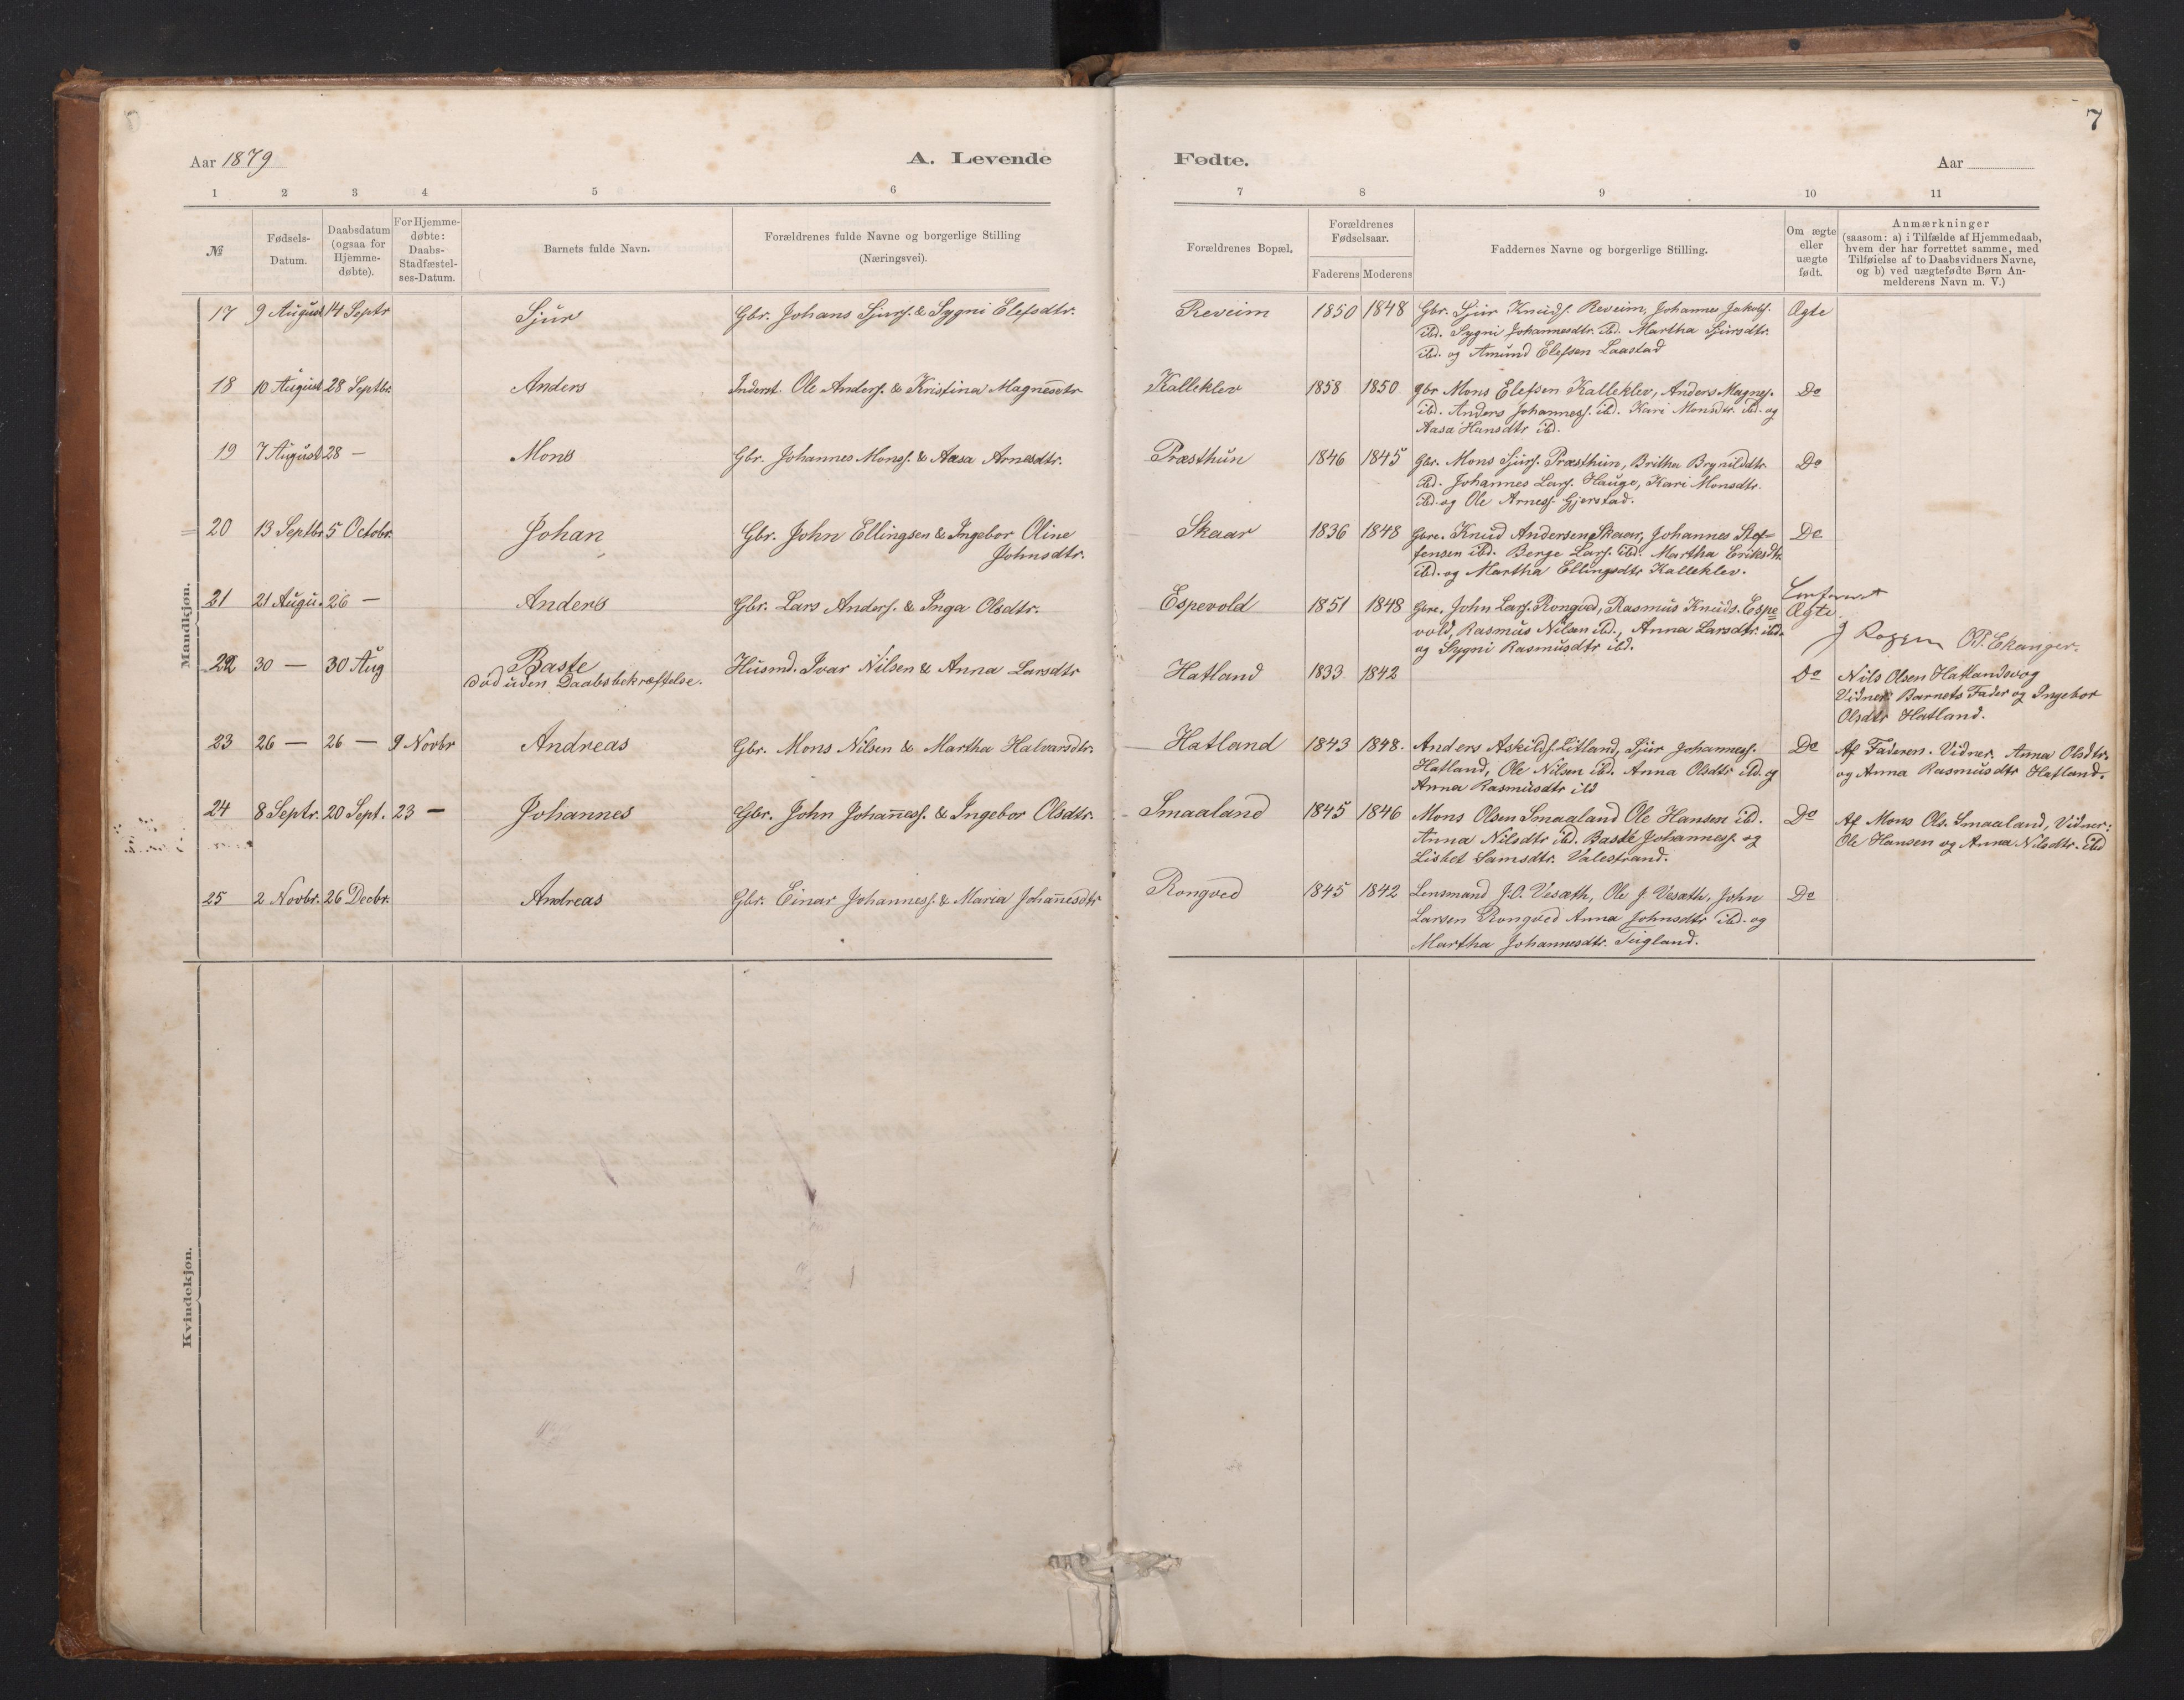 7
Aar 1879
A. Levende
Fødte.
Aar
1 2 3 4 5 6 7 8 9 10 11
№
Fødsels-
Datum.
Daabsdatum
(ogsaa for
Hjemme-
døbte).
For Hjemme-
døbte:
Daabs-
Stadfæstel-
ses-Datum.
Barnets fulde Navn.
Forældrenes fulde Navne og borgerlige Stilling
(Næringsvei).
Forældrenes Bopæl.
Forældrenes
Fødselsaar.
Faderens Moderens
Faddernes Navne og borgerlige Stilling.
Om ægte
eller
uægte
født.
Anmærkninger
(saasom: a) i Tilfælde af Hjemmedaab,
hvem der har forrettet samme, med
Tilføielse af to Daabsvidners Navne,
og b) ved uægtefødte Børn An-
melderens Navn m. V.)
Mandkjøn.
17 9 August 14 Septr Sjur Gbr. Johans Sjurs. & Sygni Elefsdtr. Reveim 1850 1848 Gbr. Sjur Knuds. Reveim, Johannes Jakobs. Ægte
ibd. Sygni Johannesdtr. ibd. Martha Sjursdtr.
ibd. og Amund Elefsen Laastad
18 10 August 28 Septbr. Anders Inderst. Ole Anders. & Kristina Magnesdtr Kalleklev 1858 1850 gbr Mons Elefsen Kalleklev, Anders Magnes. Do
ibd. Anders Johanness. ibd. Kari Monsdtr. ibd. og
Aasa Hansdtr ibd.
19 7 August 28 — Mons Gbr. Johannes Monss. & Aasa Arnesdtr. Præsthun 1846 1845 Gbr. Mons Sjurs. Præsthun, Britha Brynilddtr. Do
ibd. Johannes Lars. Hauge, Kari Monsdtr.
ibd. og Ole Arness. Gjerstad.
20 13 Septbr. 5 Octobr. Johan Gbr. John Ellingsen & Ingebor Oline Skaar 1836 1848 Gbre. Knud Andersen Skaar, Johannes Stef= Do
Johnsdtr. fensen ibd. Berge Lars. ibd. Martha Eriksdtr.
ibd. og Martha Ellingsdtr Kalleklev.
21 21 Augu. 26 — Anders Gbr. Lars Anders. & Inga Olsdtr. Espevold 1851 1848 Gbre. John Lars. Rongved, Rasmus Knuds. Espe= Ægte.
vold, Rasmus Nilsen ibd., Anna Larsdtr. ibd.
og Sygni Rasmusdtr ibd. O.T. Ekanger.
22 30 — 30 Aug Baste Husmd. Ivar Nilsen & Anna Larsdtr Hatland 1833 1842 Do Nils Olsen Hatlandsvog
død uden Daabsbekræftelse. Vidner: Barnets Fader og Ingebor
Olsdtr Hatland.
23 26 — 26 — 9 Novbr Andreas Gbr. Mons Nilsen & Martha Halvarsdtr. Hatland 1843 1848. Anders Askilds. Litland, Sjur Johanness. Do Af Faderen. Vidner. Anna Olsdtr.
Hatland, Ole Nilsen ibd. Anna Olsdtr ibd. og og Anna Rasmusdtr Hatland.
Anna Rasmusdtr ibd
24 8 Septr. 20 Sept. 23 — Johannes Gbr. John Johaness. & Ingebor Olsdtr. Smaaland 1845 1846 Mons Olsen Smaaland Ole Hansen ibd. Do Af Mons Ols. Smaaland, Vidner:
Anna Nilsdtr ibd. Baste Johanness. og Ole Hansen og Anna Nilsdtr. ibd
Lisbet Samsdtr. Valestrand.
25 2 Novbr. 26 Decbr. Andreas Gbr. Einar Johanness. & Maria Johanesdtr Rongved 1845 1842 Lensmand J.O. Vesæth, Ole J. Vesæth, John Do
Larsen Rongved Anna Johnsdtr ibd. og
Martha Johannesdtr. Tugland.
Kvindekjøn.